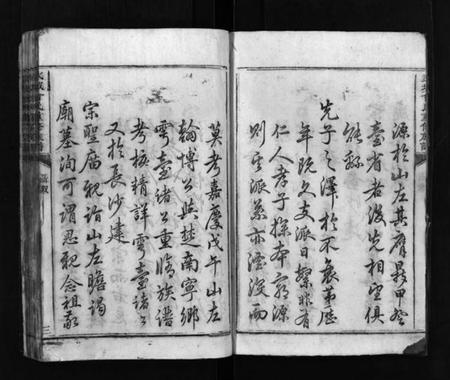 源於山左其膺薦甲登
臺省者後先相望俱
能繇
先子之澤於不衰弟歷
年既久支派日繁非有
仁人孝子探本窮源
則宗派蓋亦湮沒而
莫考嘉慶戊午山左
翰博公與楚南寧鄉
雩臺諸公重脩族譜
考核精詳雩臺諸公
又於長沙建
宗聖廟親詣山左瞻謁
廟墓洵可謂思親念祖敬
三